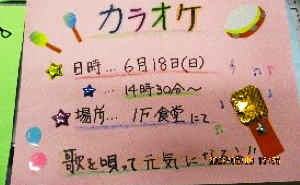 カラオケ
日時…6月18日(日)
…14時30分〜
場所…1F食堂にて
歌を唄って元気に